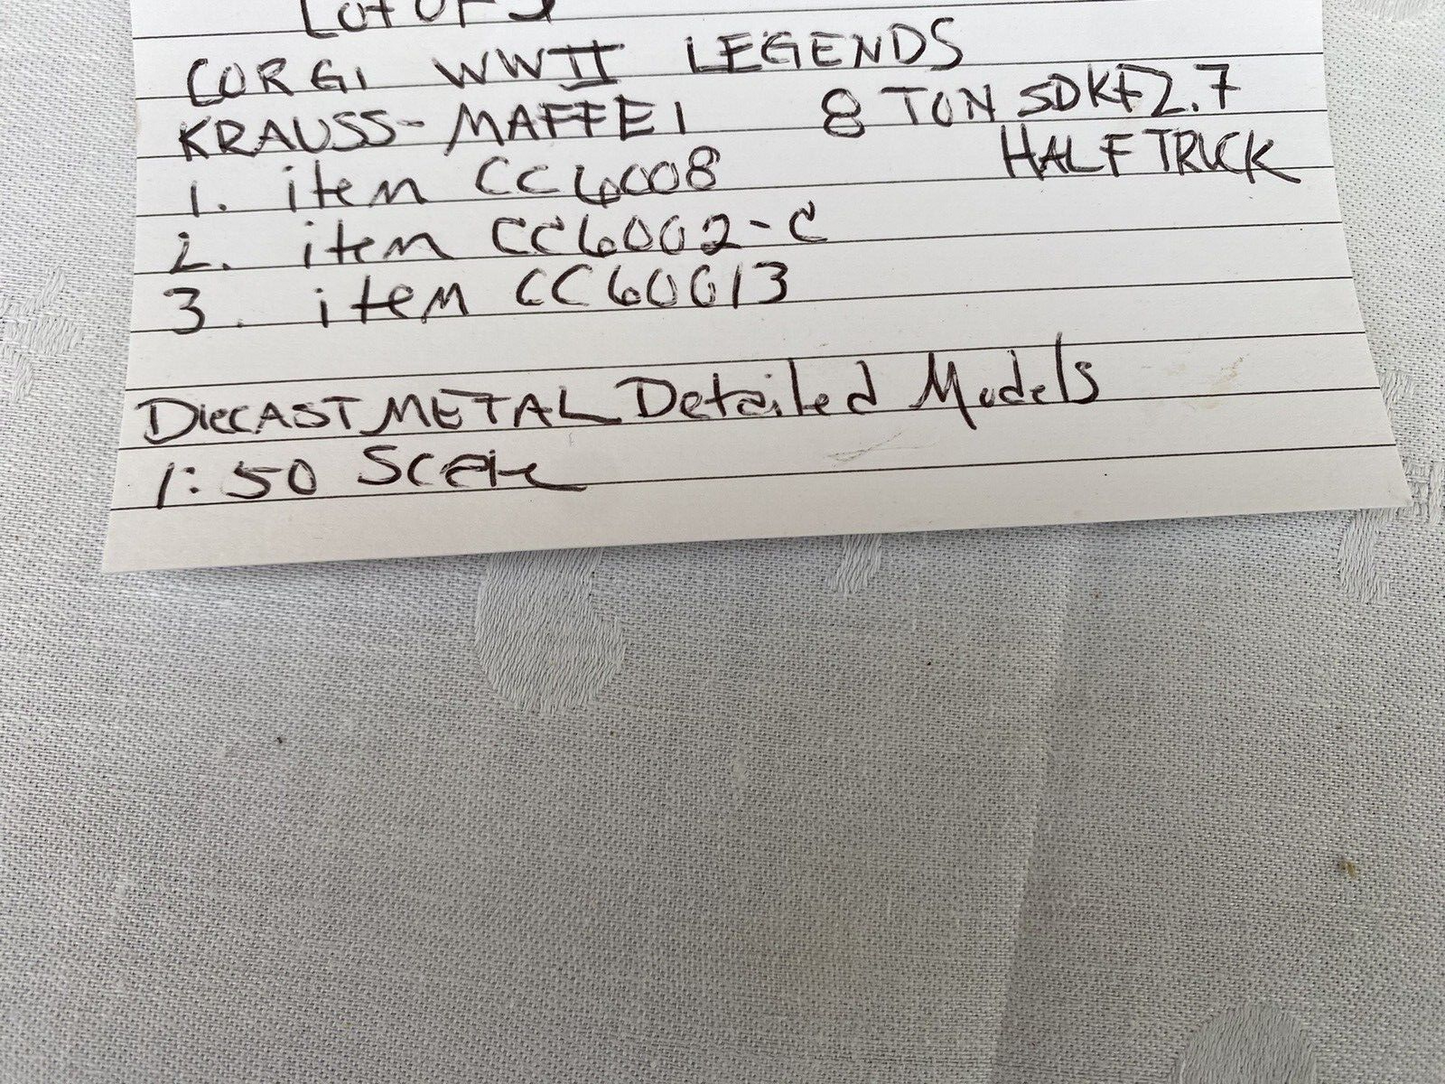 Lot of 3
CORGI WWII LEGENDS
KRAUSS-MAFFEI 8 TON SDKFZ.7
HALF TRUCK
1. item CC6008
2. item CC6002-C
3. item CC60013
DIECAST METAL Detailed Models
1:50 Scale